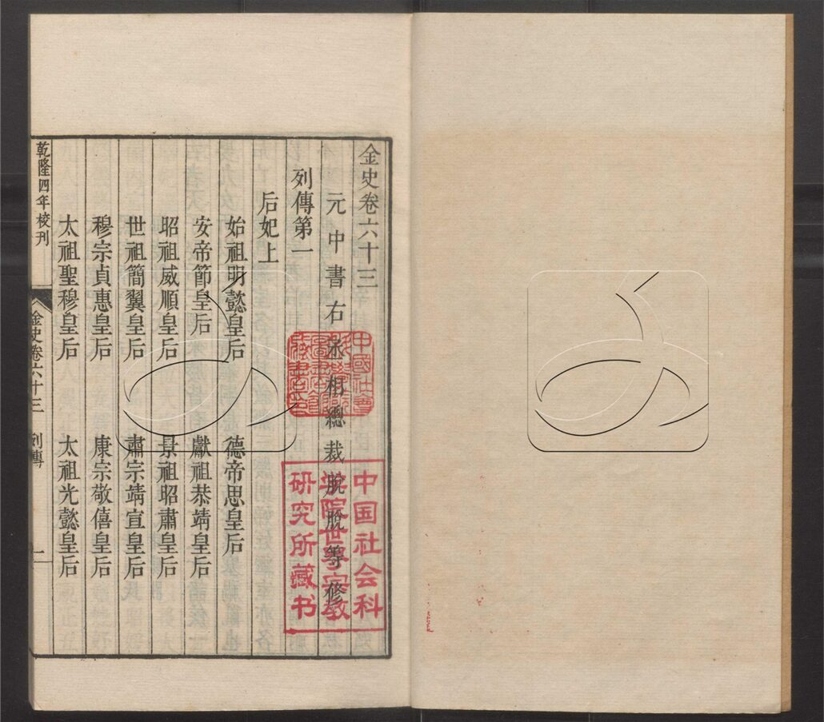 金史卷六十三
元中書右丞相總裁脫脫等修
列傳第一
后妃上
始祖明懿皇后 德帝思皇后
安帝節皇后 獻祖恭靖皇后
昭祖威順皇后 景祖昭肅皇后
世祖簡翼皇后 肅宗靖宣皇后
穆宗貞惠皇后 康宗敬僖皇后
太祖聖穆皇后 太祖光懿皇后
乾隆四年校刊
金史卷六十三 列傳 一
中國社會
科學院
圖書館
藏書之印
中国社会科
学院世界宗教
研究所藏书